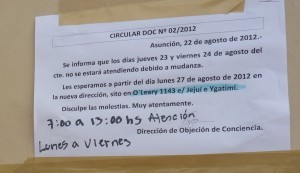 CIRCULAR DOC Nº 02/2012
Asunción, 22 de agosto de 2012.-
Se informa que los días jueves 23 y viernes 24 de agosto del
cte. no se estará atendiendo debido a mudanza.
Les esperamos a partir del día lunes 27 de agosto de 2012 en
la nueva dirección, sito en O´Leary 1143 e/ Jejuí e Ygatimí.
Disculpe las molestias. Muy atentamente.
7:00 a 13:00 hs Atención
Dirección de Objeción de Conciencia.
Lunes a Viernes